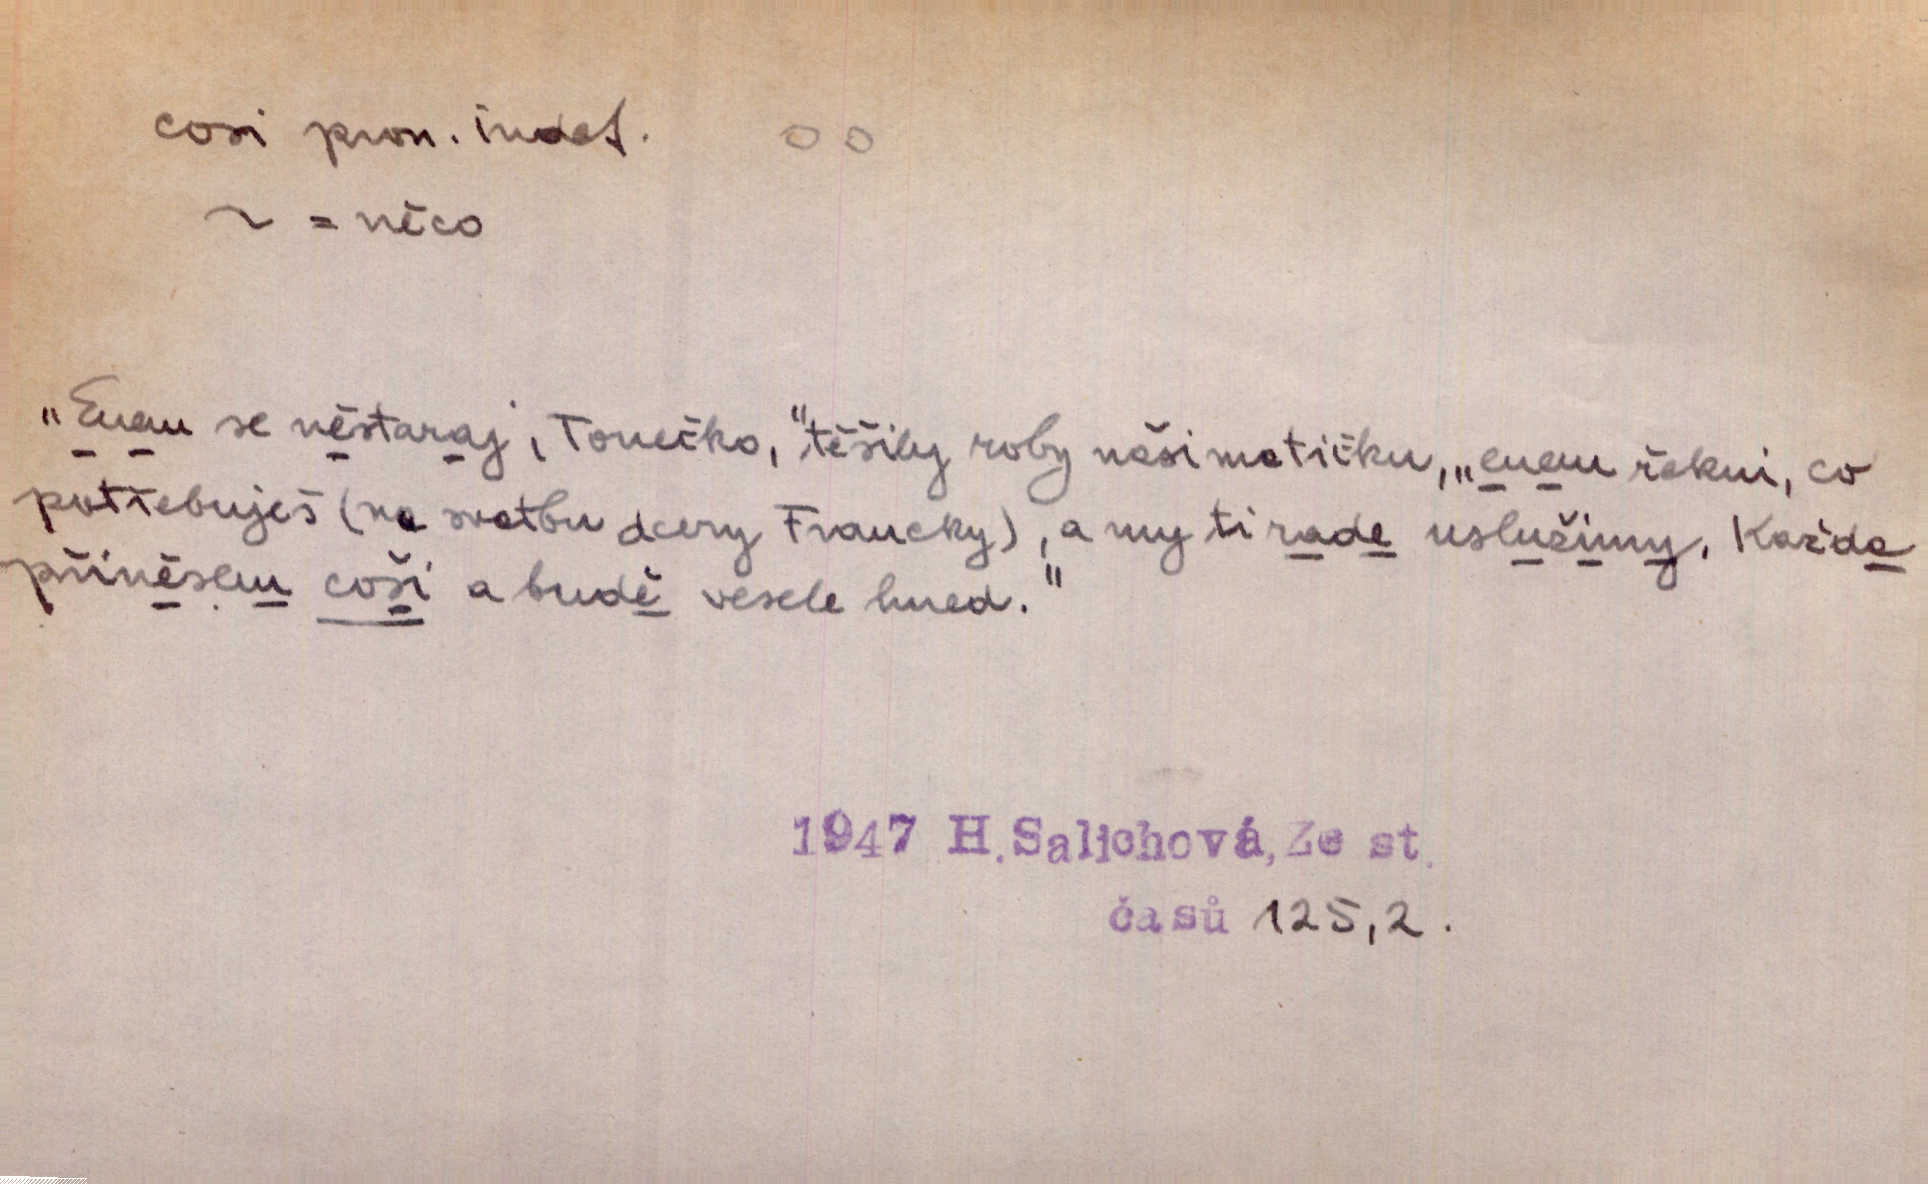 cosi pron. indef. oo
~ = něco
"Enem se něstaraj, Tonečko," těšily roby naši matičku, "enem řekni, co
potřebuješ (na svatbu dcery Francky), a my ti rade uslužimy. Každa
přiněsem coši a budě vesele hned."
1947 H. Salichová, Ze st.
časů 125,2.